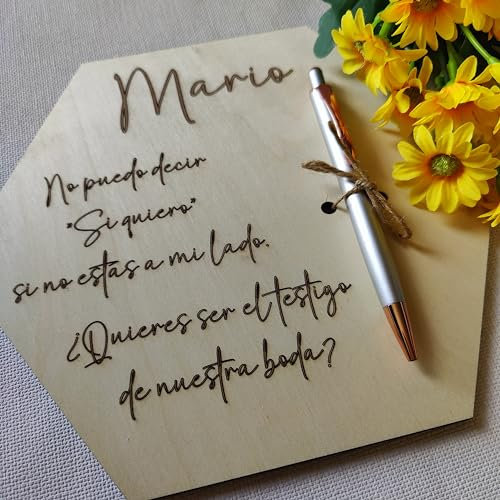 Mario
No puedo decir
"Si quiero"
si no estas a mi lado.
¿Quieres ser el testigo
de nuestra boda?